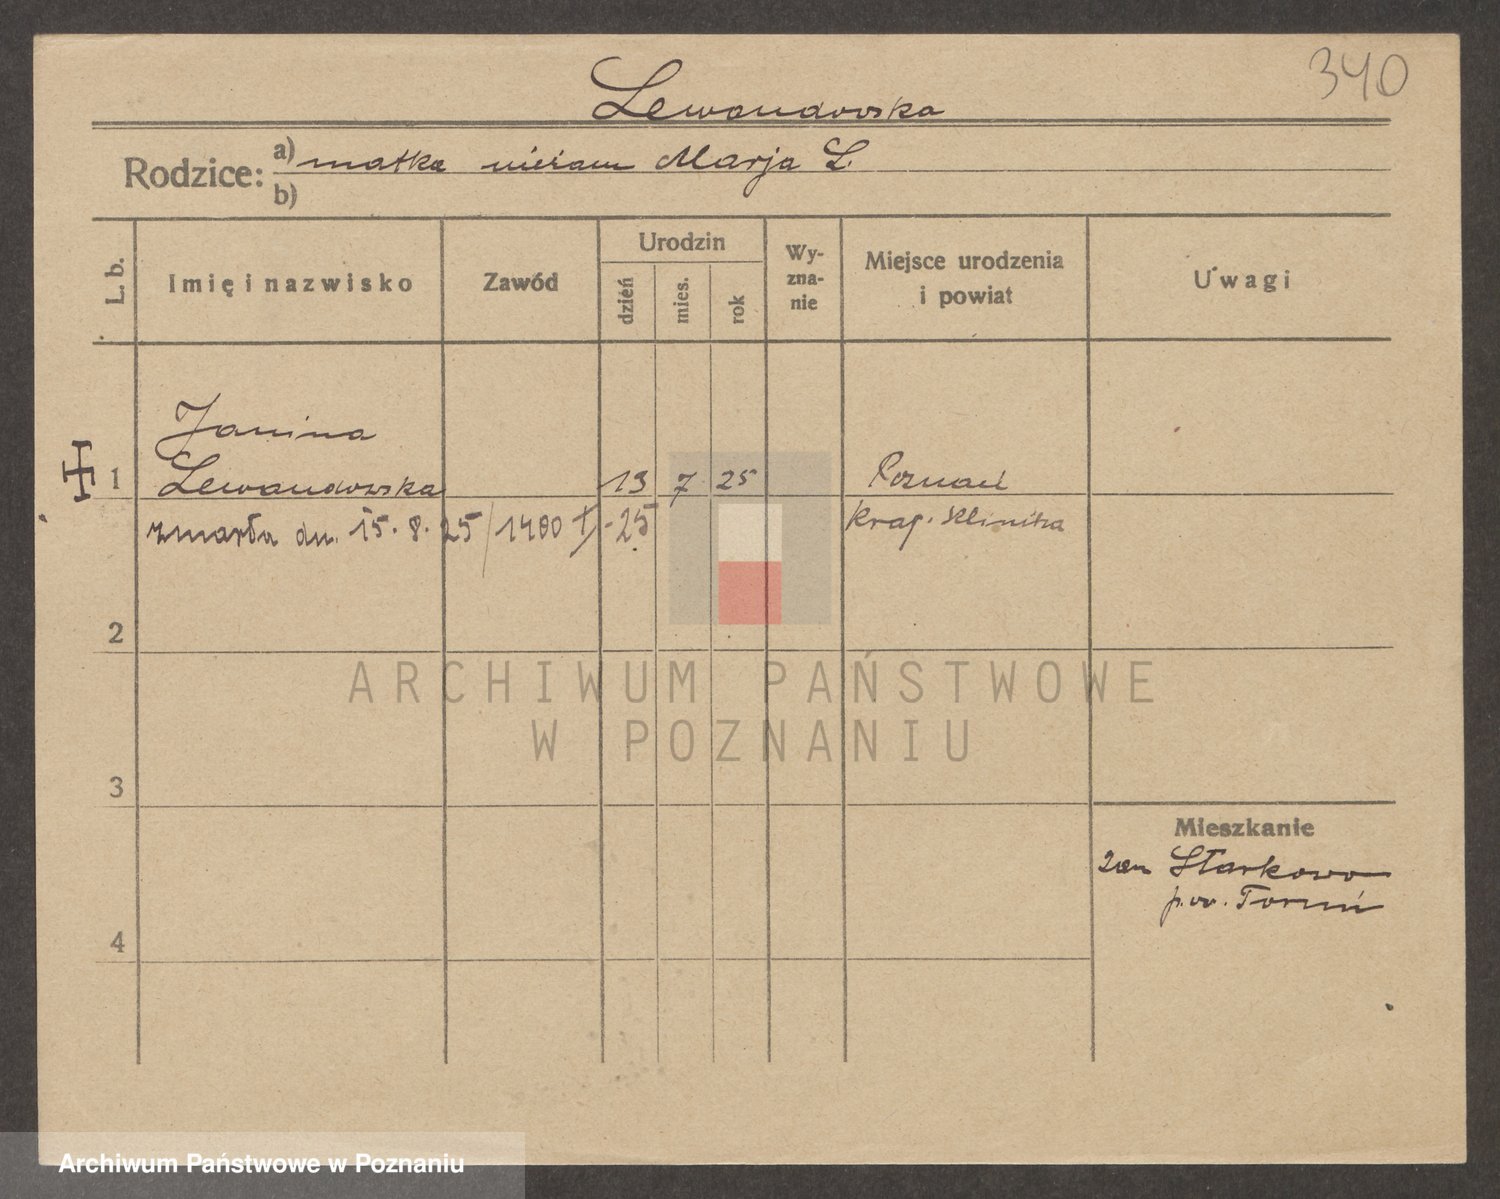 340
Lewandowska
Rodzice: a) matka niezam Marja L.
b)
L. b.
Imię i nazwisko
Zawód
Urodzin
dzień
mies.
rok
Wy-
zna-
nie
Miejsce urodzenia
i powiat
Uwagi
Janina
1 Lewandowska 13 7 25 Poznań
zmarła dn. 15. 8. 25 / 1400 t/-25 Kraj. Klinika
2
ARCHIWUM PAŃSTWOWE
W POZNANIU
3
Mieszkanie
zam Starkowo
pow. Toruń
4
Archiwum Państwowe w Poznaniu